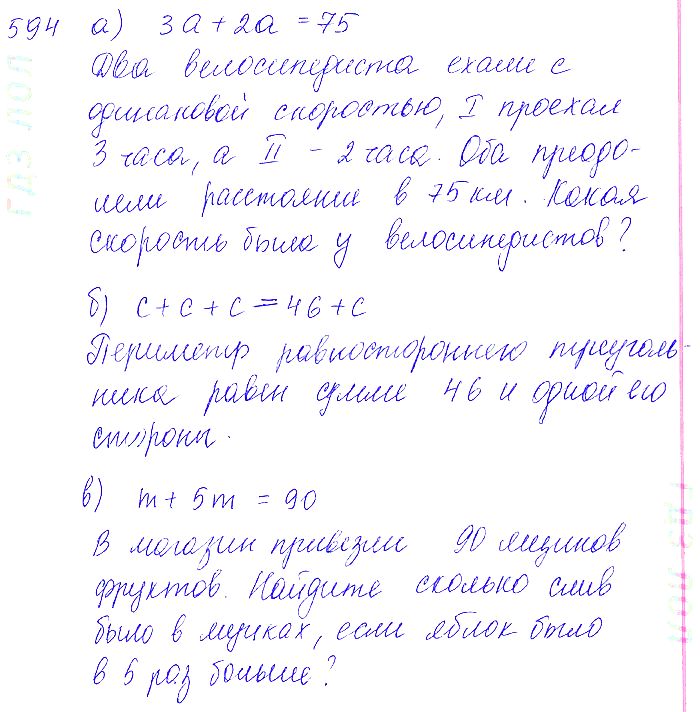 594 а) 3a + 2a = 75
Два велосипедиста ехали с
одинаковой скоростью, I проехал
3 часа, а II – 2 часа. Оба преодо-
лели расстояние в 75 км. Какая
скорость была у велосипедистов?
б) c + c + c = 46 + c
Периметр равностороннего треуголь-
ника равен сумме 46 и одной его
стороны.
в) m + 5m = 90
В магазин привезли 90 ящиков
фруктов. Найдите сколько слив
было в ящиках, если яблок было
в 5 раз больше?
ГДЗ ПОЛ